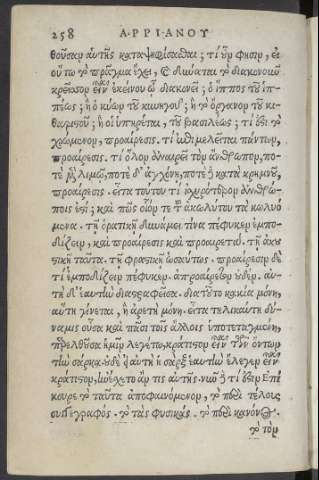 258 ΑΡΡΙΑΝΟΥ
θουσαν αὑτῆς καταψηφίσασθαι; τί οὖν φησιν, εἰ
οὕτω τὸ πρᾶγμα ἔχει, καὶ δύναται τὸ διακονοῦν
κρεῖσσον εἶναι ἐκείνου ᾧ διακονεῖ; ὁ ἵππος τοῦ ἱπ-
πέως; ἢ ὁ κύων τοῦ κυνηγοῦ; ἢ τὸ ὄργανον τοῦ κι-
θαριστοῦ; ἢ οἱ ὑπηρέται, τοῦ βασιλέως; τί ἐστι τὸ
χρώμενον, προαίρεσις. τί ἐπιμελεῖται πάντων,
προαίρεσις. τί ὅλον ἀναιρεῖ τὸν ἄνθρωπον, πο-
τὲ μὲν λιμῷ, ποτὲ δ' ἀγχόνῃ, ποτὲ κατὰ κρημνοῦ,
προαίρεσις. εἶτα τούτου τί ἰσχυρότερον ἀνθρώ-
ποις ἐστί; καὶ πῶς οἷόν τε τοῦ ἀκωλύτου τὰ κωλυό
μενα. τῇ ὁρατικῇ δυνάμει τίνα πέφυκεν ἐμπο-
δίζειν, καὶ προαίρεσις καὶ προαιρετά. τῇ ἀκου
στικῇ ταῦτα. τῇ φραστικῇ ὡσαύτως. προαίρεσιν δὲ
τί ἐμποδίζειν πέφυκεν. ἀπροαίρετον οὐδέν. αὐ-
τὴ δ' ἑαυτὴν διαστραφεῖσα. διὰ τοῦτο κακία μόνη,
αὕτη γίνεται, ἢ ἀρετὴ μόνη. εἶτα τηλικαύτη δύ-
ναμις οὖσα καὶ πᾶσι τοῖς ἄλλοις ὑποτεταγμένη,
παρελθοῦσα ἡμῖν λεγέτω, κράτιστον εἶναι τῶν ὄντων
τὴν σάρκα. οὐδὲ εἰ αὐτὴ ἡ σὰρξ ἑαυτὴν ἔλεγεν εἶναι
κράτιστον, ἠνέσχετο ἄν τις αὐτῆς. νῦν δὲ τί ἐστιν Ἐπί
κουρε τὸ ταῦτα ἀποφαινόμενον, τὸ περὶ τέλους
συγγεγραφός. τὸ τὰς φυσικάς. τὸ περὶ κανόνος.
τὸ τὸν